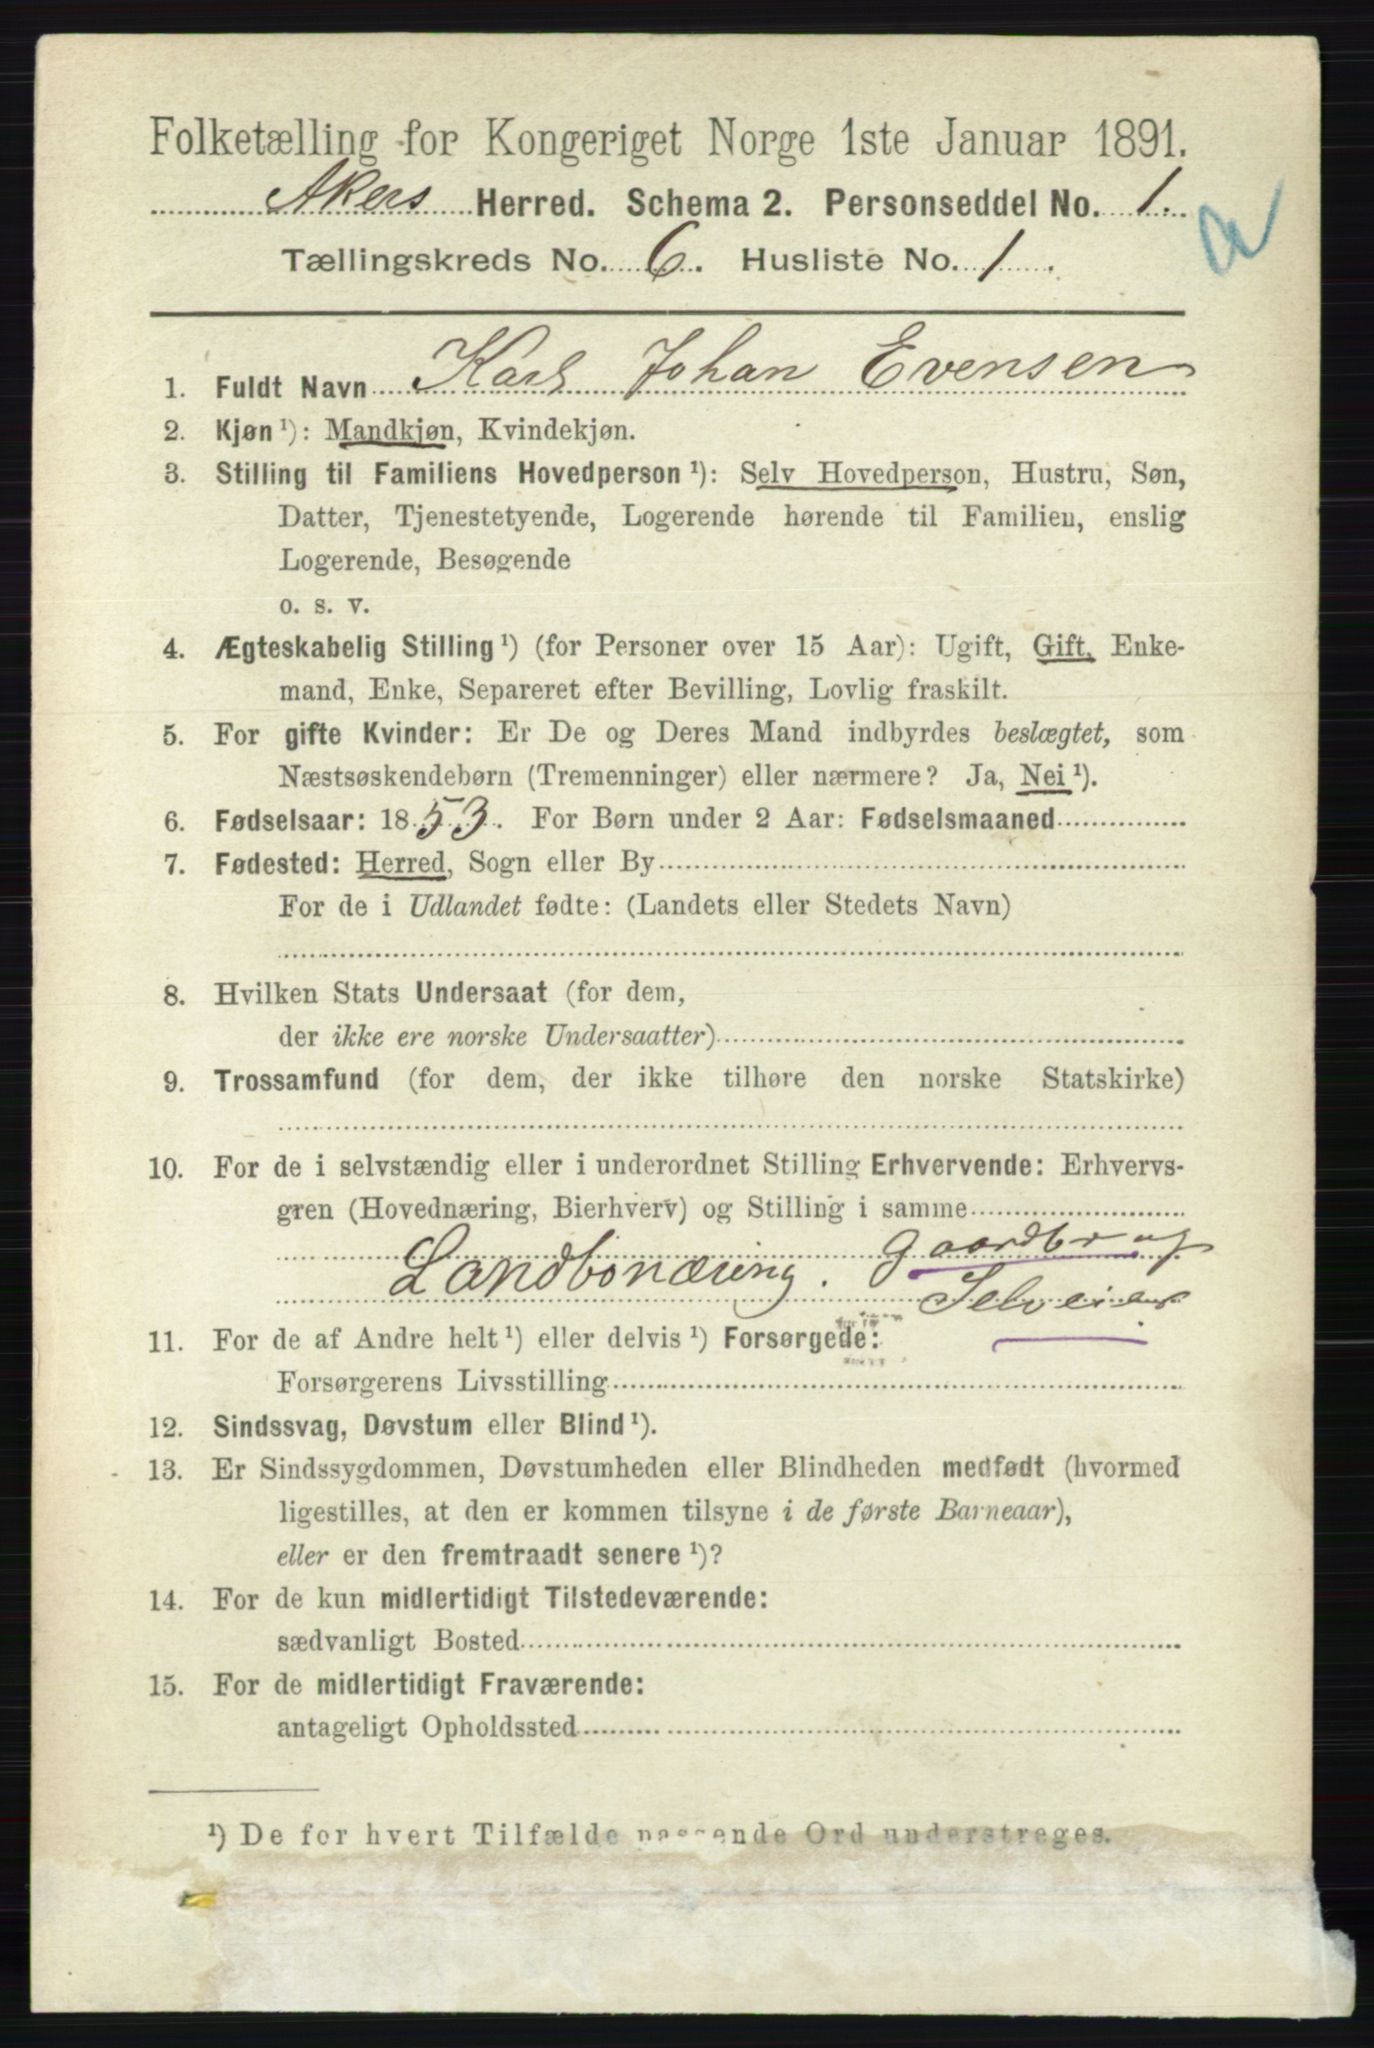 Folketælling for Kongeriget Norge 1ste Januar 1891.
Akers Herred. Schema 2. Personseddel No. 1.
Tællingskreds No. 6. Husliste No. 1.
1. Fuldt Navn Karl Johan Evensen
2. Kjøn ¹): Mandkjøn, Kvindekjøn.
3. Stilling til Familiens Hovedperson ¹): Selv Hovedperson, Hustru, Søn,
Datter, Tjenestetyende, Logerende hørende til Familien, enslig
Logerende, Besøgende
o. s. v.
4. Ægteskabelig Stilling ¹) (for Personer over 15 Aar): Ugift, Gift, Enke-
mand, Enke, Separeret efter Bevilling, Lovlig fraskilt.
5. For gifte Kvinder: Er De og Deres Mand indbyrdes beslægtet, som
Næstsøskendebørn (Tremenninger) eller nærmere? Ja, Nei ¹).
6. Fødselsaar: 1853. For Børn under 2 Aar: Fødselsmaaned
7. Fødested: Herred, Sogn eller By
For de i Udlandet fødte: (Landets eller Stedets Navn)
8. Hvilken Stats Undersaat (for dem,
der ikke ere norske Undersaatter)
9. Trossamfund (for dem, der ikke tilhøre den norske Statskirke)
10. For de i selvstændig eller i underordnet Stilling Erhvervende: Erhvervs-
gren (Hovednæring, Bierhverv) og Stilling i samme
Landbonæring. gaardbrug
Selveier
11. For de af Andre helt ¹) eller delvis ¹) Forsørgede:
Forsørgerens Livsstilling
12. Sindssvag, Døvstum eller Blind ¹).
13. Er Sindssygdommen, Døvstumheden eller Blindheden medfødt (hvormed
ligestilles, at den er kommen tilsyne i de første Barneaar),
eller er den fremtraadt senere ¹)?
14. For de kun midlertidigt Tilstedeværende:
sædvanligt Bosted
15. For de midlertidigt Fraværende:
antageligt Opholdssted
¹) De for hvert Tilfælde passende Ord understreges.